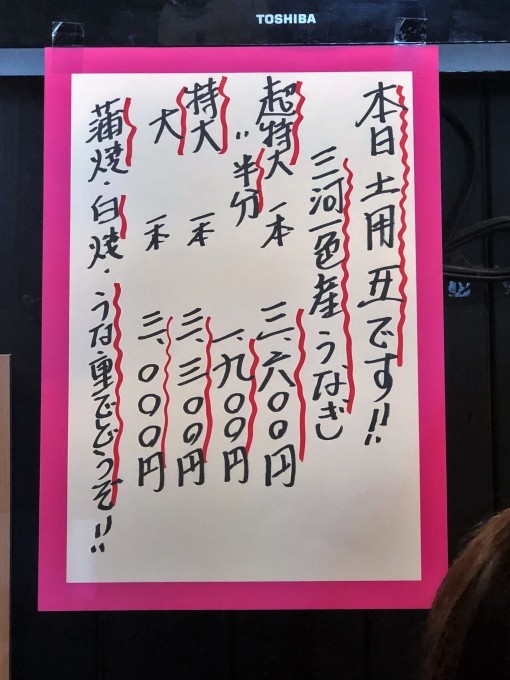 TOSHIBA
本日土用丑です!!
三河一色産うなぎ
超特大 一本 三、六〇〇円
〃 半分 一、九〇〇円
特大 一本 三、三〇〇円
大 一本 三、〇〇〇円
蒲焼・白焼・うな重でどうぞ!!